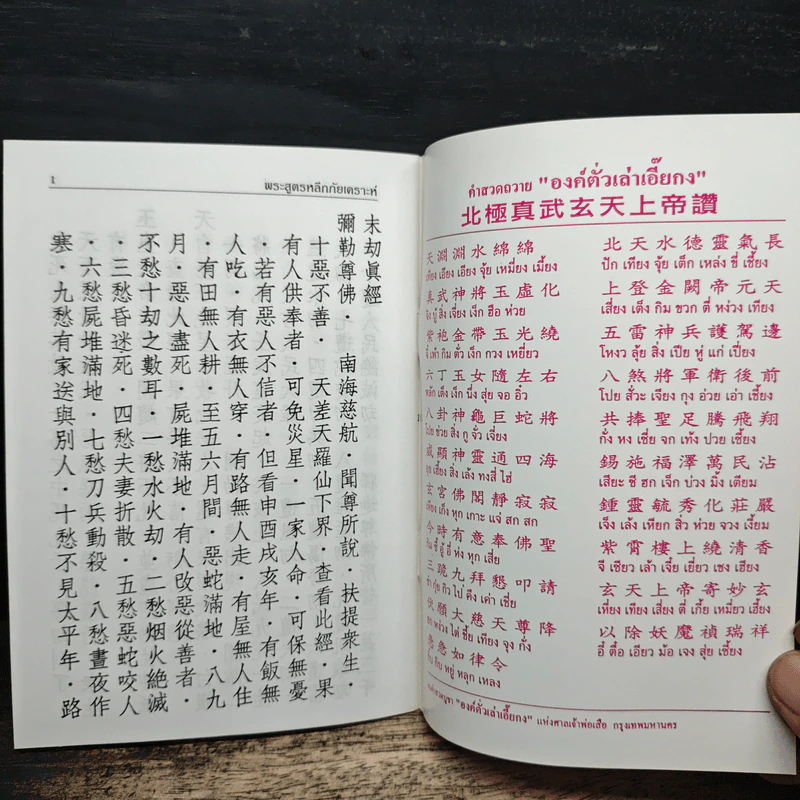 1 พระสูตรหลีกภัยเคราะห์
末劫眞經
彌勒尊佛．南海慈航．聞尊所說．扶提衆生．
十惡不善．四天差天羅仙下界．查看此經．果
有人供奉者．可免災星．一家人命．可保無憂
．若有惡人不信者．但看申酉戌亥年．有飯無
人吃．有衣無人穿．有路無人走．有屋無人住
．有田無人耕．至五六月間．惡蛇滿地．八九
月．惡人盡死．屍堆滿地．有人改惡從善者．
不愁十劫之數耳．一愁水火劫．二愁烟火絶滅
．三愁昏迷死．四愁夫妻折散．五愁惡蛇咬人
．六愁屍堆滿地．七愁刀兵動殺．八愁晝夜作
寒．九愁有家送與別人．十愁不見太平年．路
คำสวดถวาย "องค์ตั่วเล่าเอี๊ยกง"
北極真武玄天上帝讚
天淵淵水綿綿 北天水德靈氣長
เทียง เอียง เอียง จุ้ย เหมี่ยง เมี้ยง ปัก เทียง จุ้ย เต็ก เหล่ง ขี่ เชี้ยง
真武神將玉虛化 上登金闕帝元天
บู๊ สิ่ง เจี่ยง เง็ก ฮือ ห่วย เสี่ยง เต็ง กิม ขวก ตี่ หง่วง เทียง
紫袍金帶玉光繞 五雷神兵護駕邊
เผ้า กิม ตั่ว เง็ก กวง เหยี่ยว โหงว ลุ้ย สิ่ง เปีย หู่ แก่ เปี่ยง
六丁玉女隨左右 八煞將軍衛後前
หลัก เต็ง เง็ก นึ่ง สุ่ย จอ อิ่ว โปย สั่วะ เจี่ยง กุง อ่วย เอ่า เชี้ยง
八卦神龜巨蛇將 共捧聖足騰飛翔
โปย ข่วย สิ่ง กู จั่ว เจี่ยง กั่ง หง เซี่ย จก เท้ง ปวย เชี้ยง
威顯神靈通四海 錫施福澤萬民沾
อุย เฮี่ยง สิ่ง เล้ง ทงสี่ ไฮ่ เสียะ ซี ฮก เจ็ก บ่วง มิ้ง เตียม
玄宮佛閣靜寂寂 鍾靈毓秀化莊嚴
เก็ง หุก เกาะ แจ่ สก สก เจ็ง เล้ง เหียก สิ่ว ห่วย จวง เงี้ยม
今時有意奉佛聖 紫霄樓上繞清香
ซี้ อู๋ อี่ ห่ง หุก เสี่ย จี เซียว เล้า เจี๋ย เฮี่ยว เชง เฮียง
三跪九拜懇叩請 玄天上帝寄妙玄
กุ่ย กิว ไป คึง เค่า เซี่ย เหี่ยง เทียง เสี่ยง ตี่ เกี้ย เหมี่ยว เฮี้ยง
伏願大慈天尊降 以除妖魔禎瑞祥
หง่วง ไต่ ซื้อ เทียง จุง กั่ง อี๋ ตื้อ เอียว ม้อ เจง สุ่ย เชี้ยง
急急如律令
กิบ หยู่ หลุก เหลง
"องค์ตั่วเล่าเอี๊ยกง" แห่งศาลเจ้าพ่อเสือ กรุงเทพมหานคร